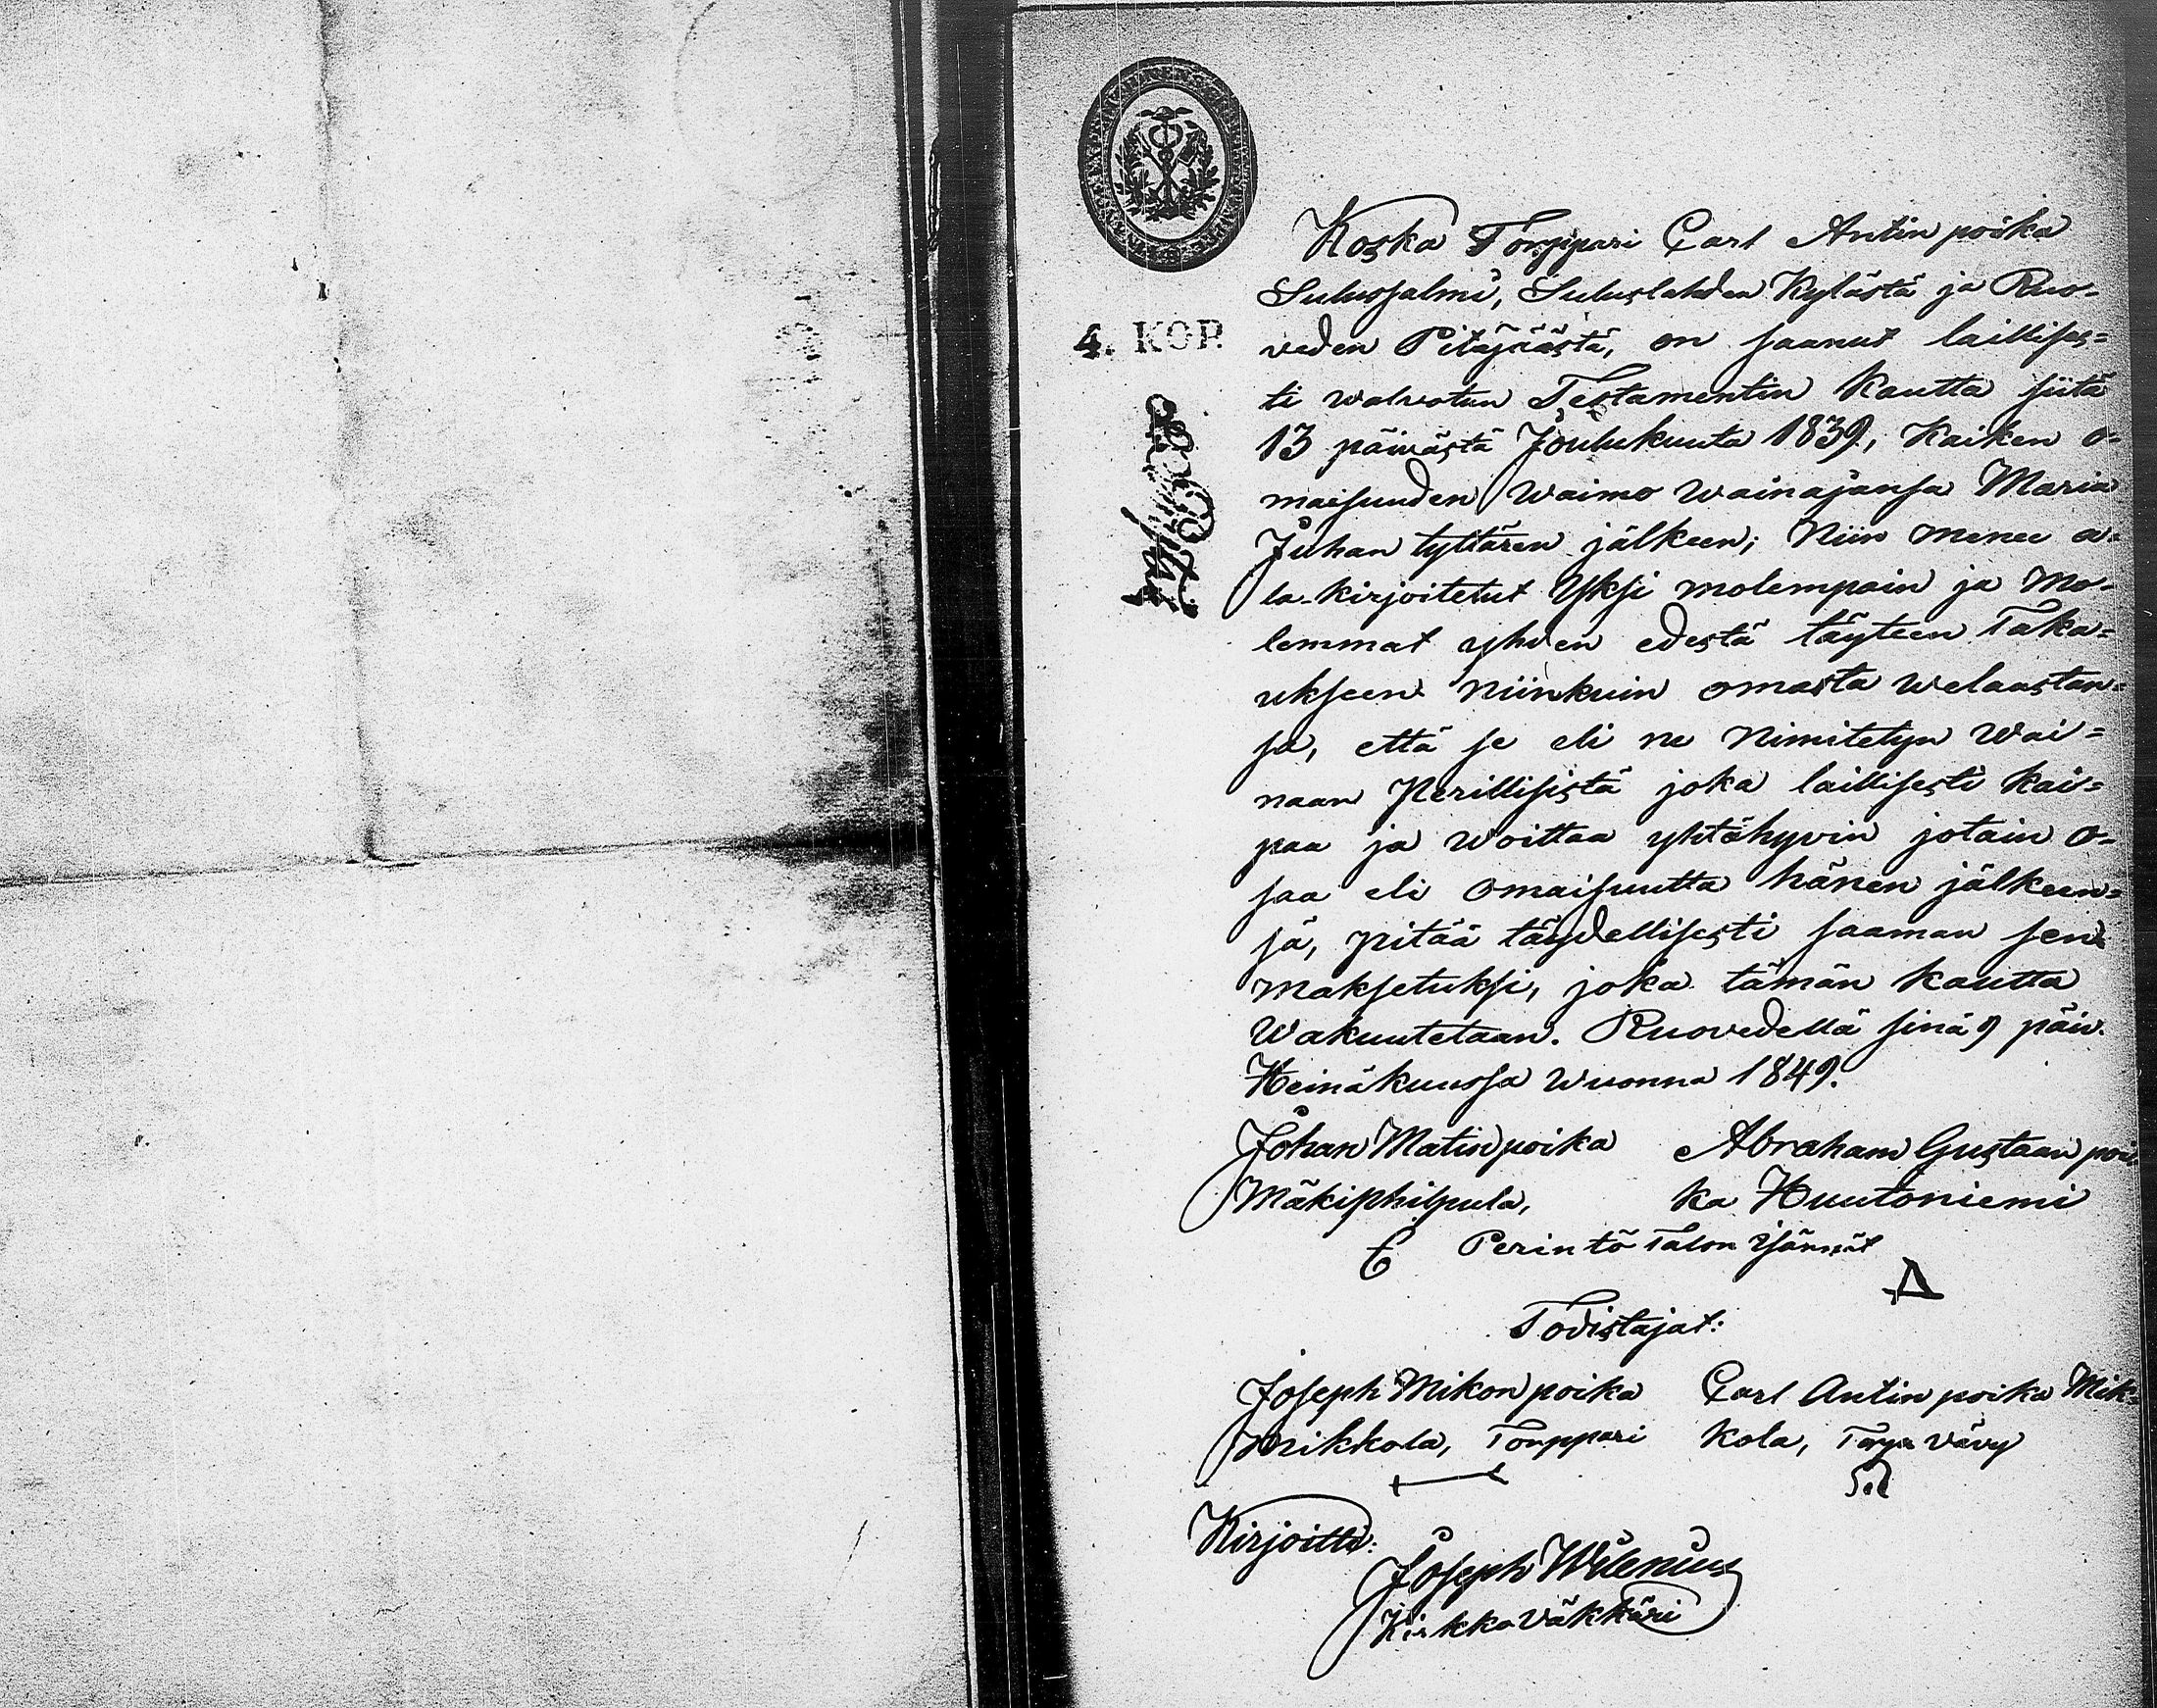 Koska Torppari Carl Antin poika
Sulussalmi, Suluslahden Kylästä ja Ruo-
4. KOP.
veden Pitäjäästä, on saanut laillises=
ti walvotun Testamentin kautta siitä
13 päivästä Joulukuuta 1839, Kaiken o-
maisuuden Waimo wainajansa Maria
Juhan tyttären jälkeen; Niin menee a=
la-kirjoitetut Yksi molempain ja Mo-
lemmat yhden edestä täyteen Taka=
ukseen niinkuin omasta welaastan=
sa, että se eli ne Nimitetyn Wai=
naan Perillisistä joka laillisesti kai=
paa ja woittaa yhtähyvin jotain o-
saa eli omaisuutta hänen jälkeen=
sä, pitää täydellisesti saaman sen
maksetuksi, joka tämän kautta
Wakuutetaan. Ruovedellä sinä 9 päiv.
Heinäkuussa wuonna 1849.
Johan Matin poika Abraham Gustaan poi-
Mäkiphilpula, ka Huutoniemi
Perintö Talon Isännät
Todistajat:
Joseph Mikon poika Carl Antin poika Mik-
Mikkola, Torppari kola, Torp. vävy
Kirjoitti:
Joseph Wilenius
Kirkko Väkkäri